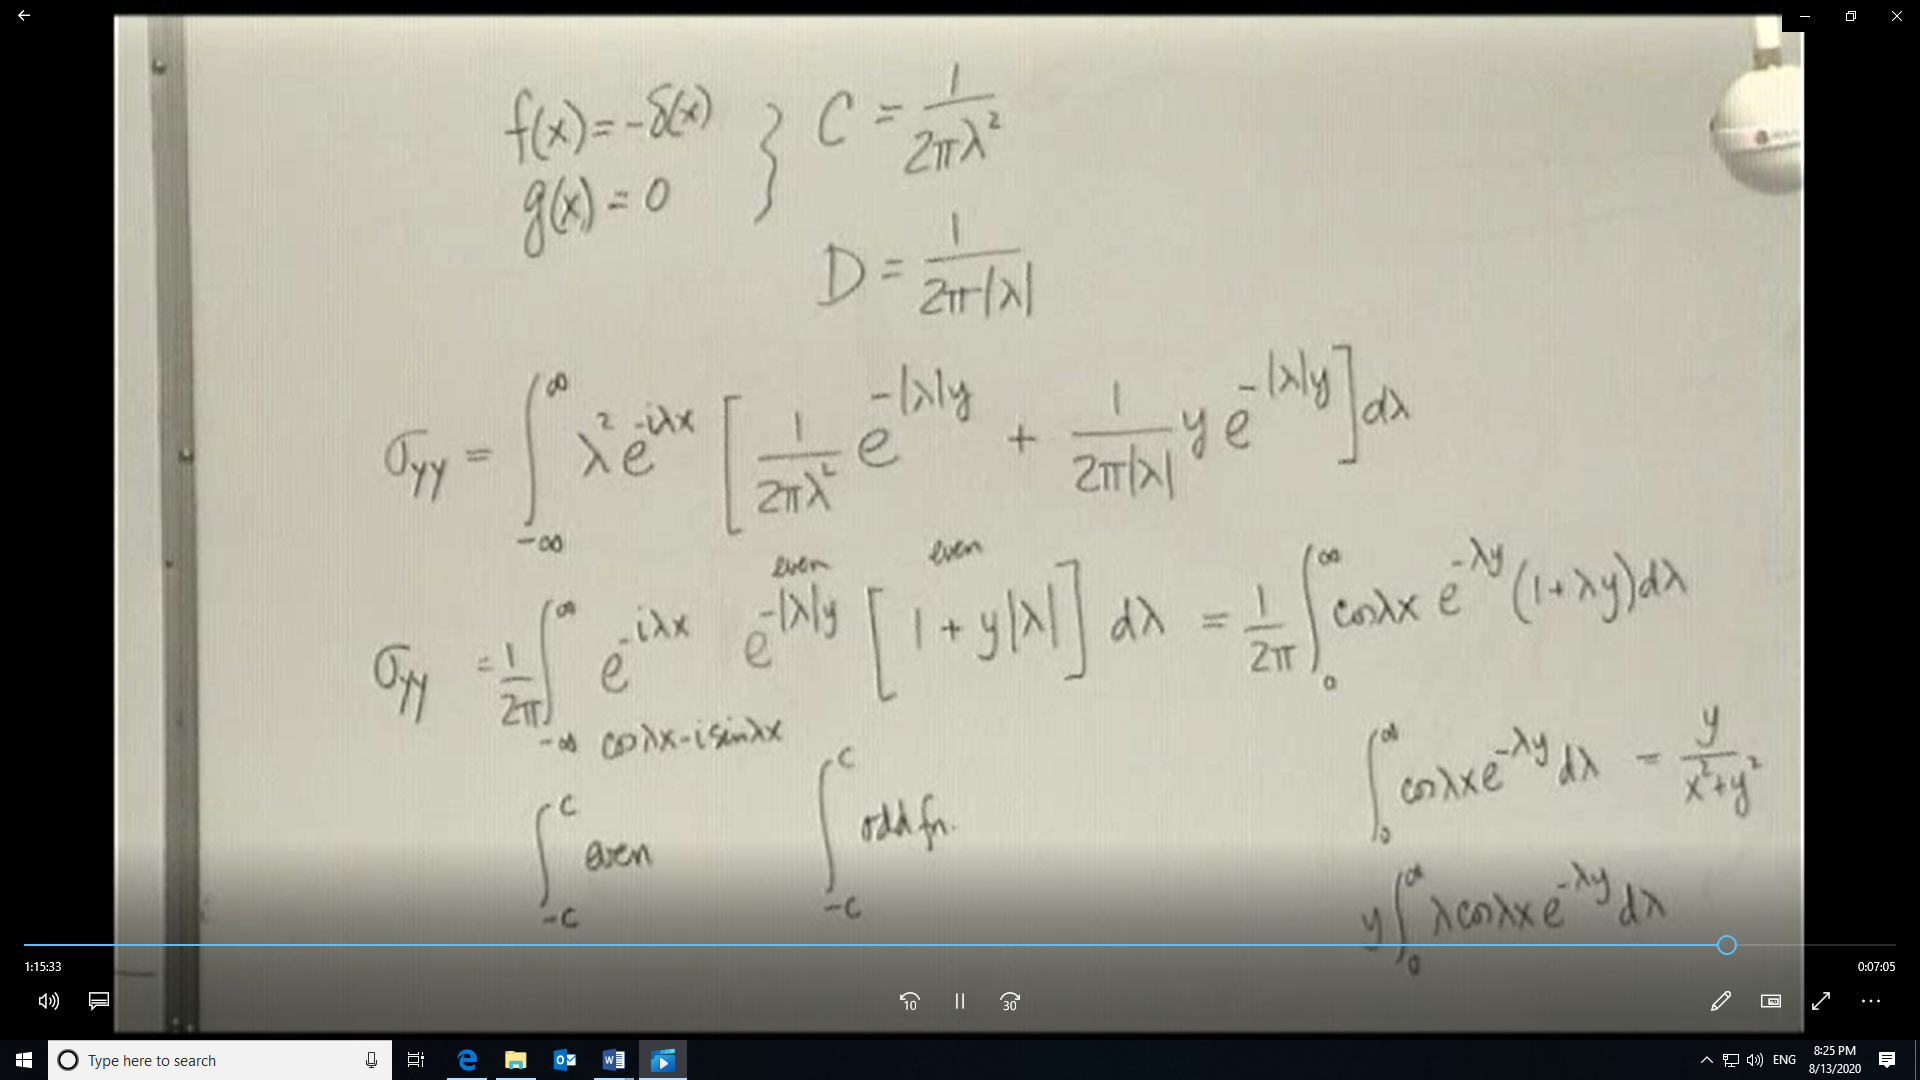 f(x) = -δ(x)
g(x) = 0
} C = 1/(2πλ²)
D = 1/(2π|λ|)
σyy = ∫_{-∞}^{∞} λ² e^{-iλx} [ 1/(2πλ²) e^{-|λ|y} + 1/(2π|λ|) y e^{-|λ|y} ] dλ
even even
σyy = 1/(2π) ∫_{-∞}^{∞} e^{-iλx} e^{-|λ|y} [ 1 + y|λ| ] dλ = 1/(2π) ∫_{0}^{∞} cosλx e^{-λy} (1+λy) dλ
cosλx - i sinλx
∫_{-c}^{c} even ∫_{-c}^{c} odd fn.
∫_{0}^{∞} cosλx e^{-λy} dλ = y/(x²+y²)
y ∫_{0}^{∞} λ cosλx e^{-λy} dλ
1:15:33
0:07:05
10
30
Type here to search
ENG
8:25 PM
8/13/2020